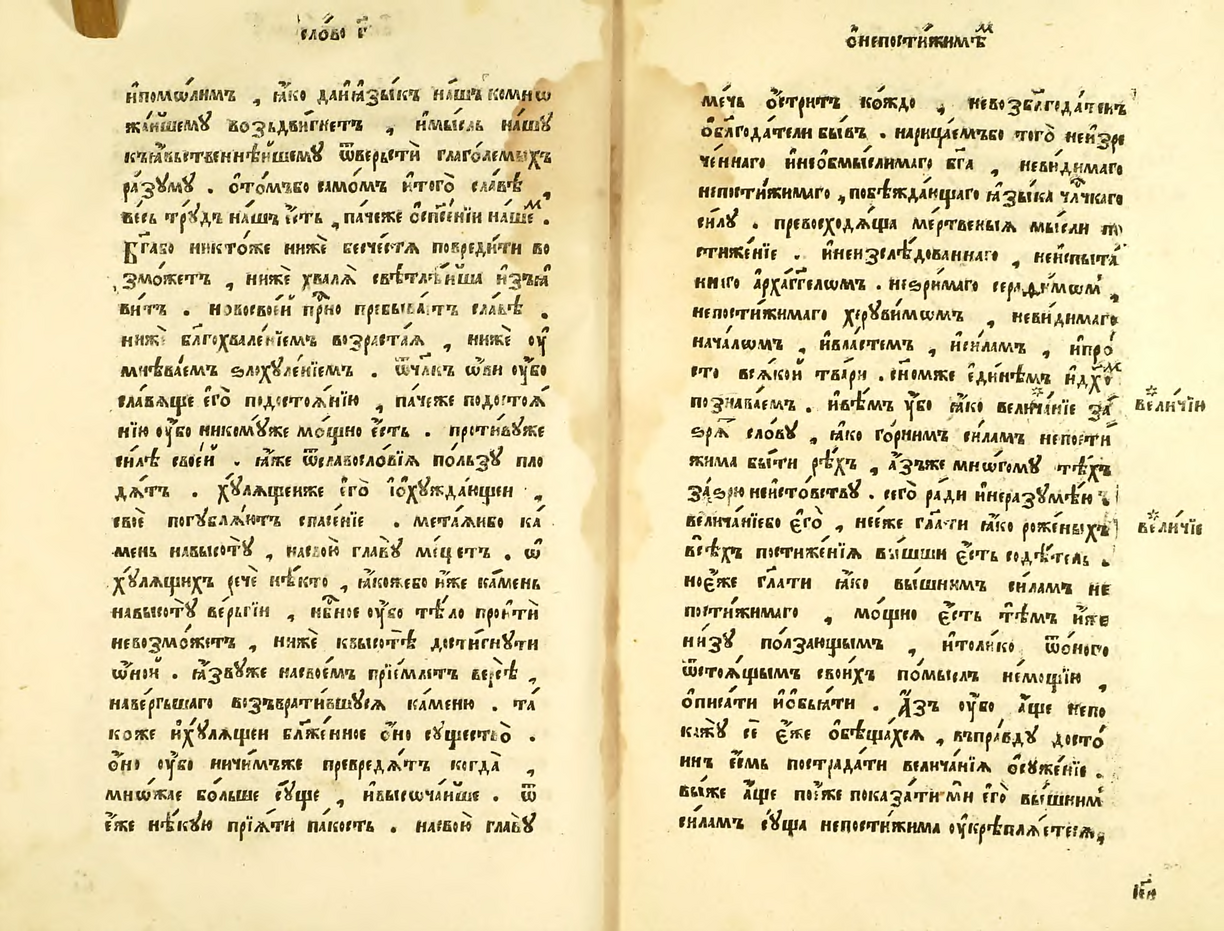 сло́во г҃
и҆помѡ́лимъ , ꙗ҆́ко даи҆ꙗ҆зы́къ на́шъ комнѡ
жа́ишемꙋ возъдви́гнетъ , и҆мы́сль на́шꙋ
къꙗ҆́вьственнѣ́ишемꙋ ѿве́рьсти глаго́лемыхъ
ра́зꙋмꙋ . ѡ҆то́мъбо само́мъ и҆того̀ сла́вѣ ,
ве́сь трꙋ́дъ на́шъ є҆́сть , па́чеже ѡ҆спс҃е́нїи на́шеⷨ .
Бг҃а́бо никто́же нижѐ бесче́стѧ повреди́ти во
змо́жетъ , нижѐ хвалѧ̀ свѣтлѣ́йша и҆зъꙗ
ви́тъ . новосвое́й при́сно пребыва́етъ сла́вѣ .
нижѐ бл҃гохвале́нїемъ возраста́ѧ , нижѐ ᲂу҆
мнѣва́емъ ѕлохꙋле́нїемъ . ѿчл҃къ ѡ҆́ви ᲂу҆́бо
сла́вѧще є҆го̀ подостоѧ́нїю , па́чеже подостоѧ́
нїю ᲂу҆́бо никомꙋ́же мо́щно є҆́сть . проти́вꙋже
си́лѣ свое́й . ꙗ҆́же ѿславосло́вїѧ по́льзꙋ пло
дѧ́тъ . хꙋ́лѧщеиже є҆го̀ і҆ѡ҆хꙋжда́ющеи ,
своѐ погꙋблѧ́ютъ спасе́нїе . мета́ѧибо ка́
мень навысотꙋ̀ , насвою̀ главꙋ̀ ме́щетъ . ѡ҆
хꙋ́лѧщихъ речѐ нѣ́кто , ꙗ҆́кожебо и҆́же ка́мень
навысотꙋ̀ ве́ргїи , нбⷭ҇ное ᲂу҆́бо тѣ́ло проитѝ
невозмо́жетъ , нижѐ квысотѣ̀ дости́гнꙋти
ѡ҆́ной . ꙗ҆́звꙋже насвое́мъ прїе́млетъ ве́рсѣ ,
наве́ргьшаго возъврати́вшꙋсѧ ка́меню . та́
коже и҆хꙋ́лѧщеи бл҃же́нное ѻ҆́но сꙋщество̀ .
ѻ҆́но ᲂу҆́бо ничи́мъже превредѧ́тъ когда̀ ,
мнѡ́жае бо́льше сꙋ́ще , и҆высоча́йше . ѿ
є҆́же нѣ́кꙋю прїѧ́ти па́кость . насвою̀ главꙋ̀
ѡ҆непостижи́мѣⷨ
ме́чь ѻ҆стри́тъ ко́ждо , невозбл҃года́тенъ
ѡ҆бл҃года́тели бы́въ . нарица́емъбо того̀ неизре
че́ннаго и҆необмы́слимаго бг҃а , неви́димаго
непостижи́маго , побѣжда́ющаго ꙗ҆зы́ка чл҃ча́каго
си́лꙋ . превосходѧ́ща ме́ртвеныѧ мы́сли по
стиже́нїе . и҆неизслѣ́дованнаго , неиспы́та
ннаго а҆рха́гг҃еломъ . неѕри́маго серафи́мѡмъ ,
непостижи́маго херꙋви́мѡмъ , неви́димаго
нача́лѡмъ , и҆вла́стемъ , и҆си́ламъ , и҆про́
сто всѧ́кой тва́ри . сн҃омже є҆ди́нѣмъ и҆дх҃оⷨ
познава́емъ . и҆вѣ́мъ ᲂу҆́бо ꙗ҆́ко велича́нїе за
ѕрѧ̀ сло́вꙋ , ꙗ҆́ко го́рнимъ си́ламъ непости
жима бы́ти рѣ́хъ , а҆́зъже мно́гомꙋ тѣ́хъ
за́ѕрю неи́стовьствꙋ . сего̀ ра́ди и҆неразꙋмѣ́ю
велича́нїебо є҆го̀ , нее́же гл҃ати ꙗ҆́ко роже́ныхъ
всѣ́хъ постиже́нїѧ вы́шши є҆́сть содѣ́тель .
ное́же гл҃ати ꙗ҆́ко вы́шнимъ си́ламъ не
постижи́маго , мо́щно є҆́сть тѣ́мъ и҆́же
ни́зꙋ по́лзающымъ , и҆толи́ко ѿо́ного
ѿстоѧ́щымъ свои́хъ по́мыслъ не́мощїю ,
ѻ҆писа́ти и҆ѡ҆б̾ѧ́ти . А҆́зъ ᲂу҆́бо а҆́ще непо
кажꙋ̀ сѐ є҆́же ѡ҆бѣща́хсѧ , въпра́вдꙋ досто́
инъ є҆́смь пострада́ти велича́нїѧ ѡ҆сꙋже́нїе .
вы́же а҆́ще по́зже показа́ти мѝ є҆го̀ вы́шнимъ
си́ламъ сꙋ́ща непостижи́ма ᲂу҆крѣплѧ́етесѧ ,
вели́чїю
вели́чїе